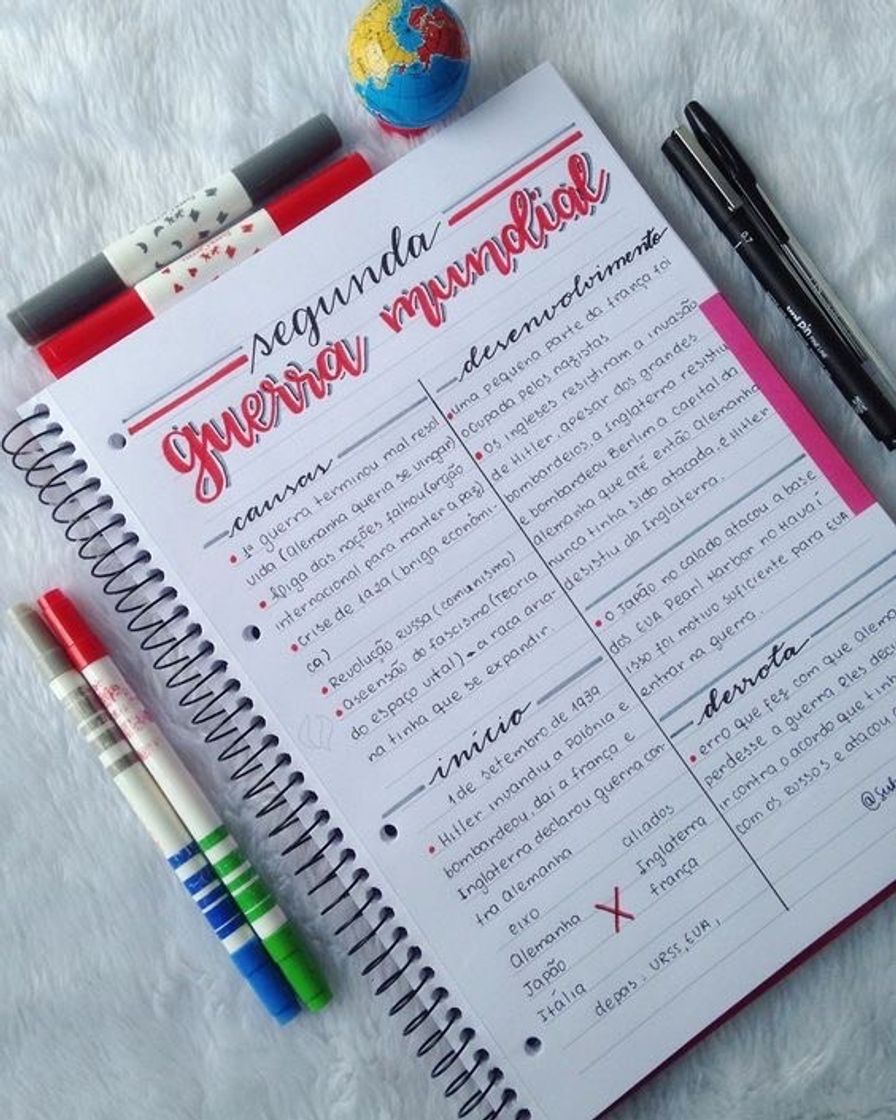 segunda
guerra mundial
causas
• 1ª guerra terminou mal resol
vida (Alemanha queria se vingar)
• Aliga das nações falhou (orgão
internacional para manter a paz)
• Crise de 1929 (briga econômi-
ca)
• Revolução Russa (comunismo)
• Ascensão do fascismo (Teoria
do espaço vital) → a raça aria-
na tinha que se expandir.
início
1 de setembro de 1939
• Hitler invandiu a Polônia e
bombardeou, daí a frança e
Inglaterra declarou guerra con-
tra Alemanha
eixo
aliados
Alemanha X Inglaterra
Japão
frança
Itália
depois: URSS, EUA,
desenvolvimento
• uma pequena parte da frança foi
ocupada pelos nazistas
• Os ingleses resistiram a invasão
de Hitler, apesar dos grandes
bombardeios, a Inglaterra resistiu
e bombardeou Berlim a capital da
Alemanha que até então Alemanha
nunca tinha sido atacada, e Hitler
desistiu da Inglaterra.
• O Japão no calado atacou a base
dos EUA Pearl Harbor no Havaí
isso foi motivo suficiente para EUA
entrar na guerra.
derrota
• erro que fez com que Alem
perdesse a guerra. Eles deci
ir contra o acordo que tin
com os Russos e atacou
0.7
pin